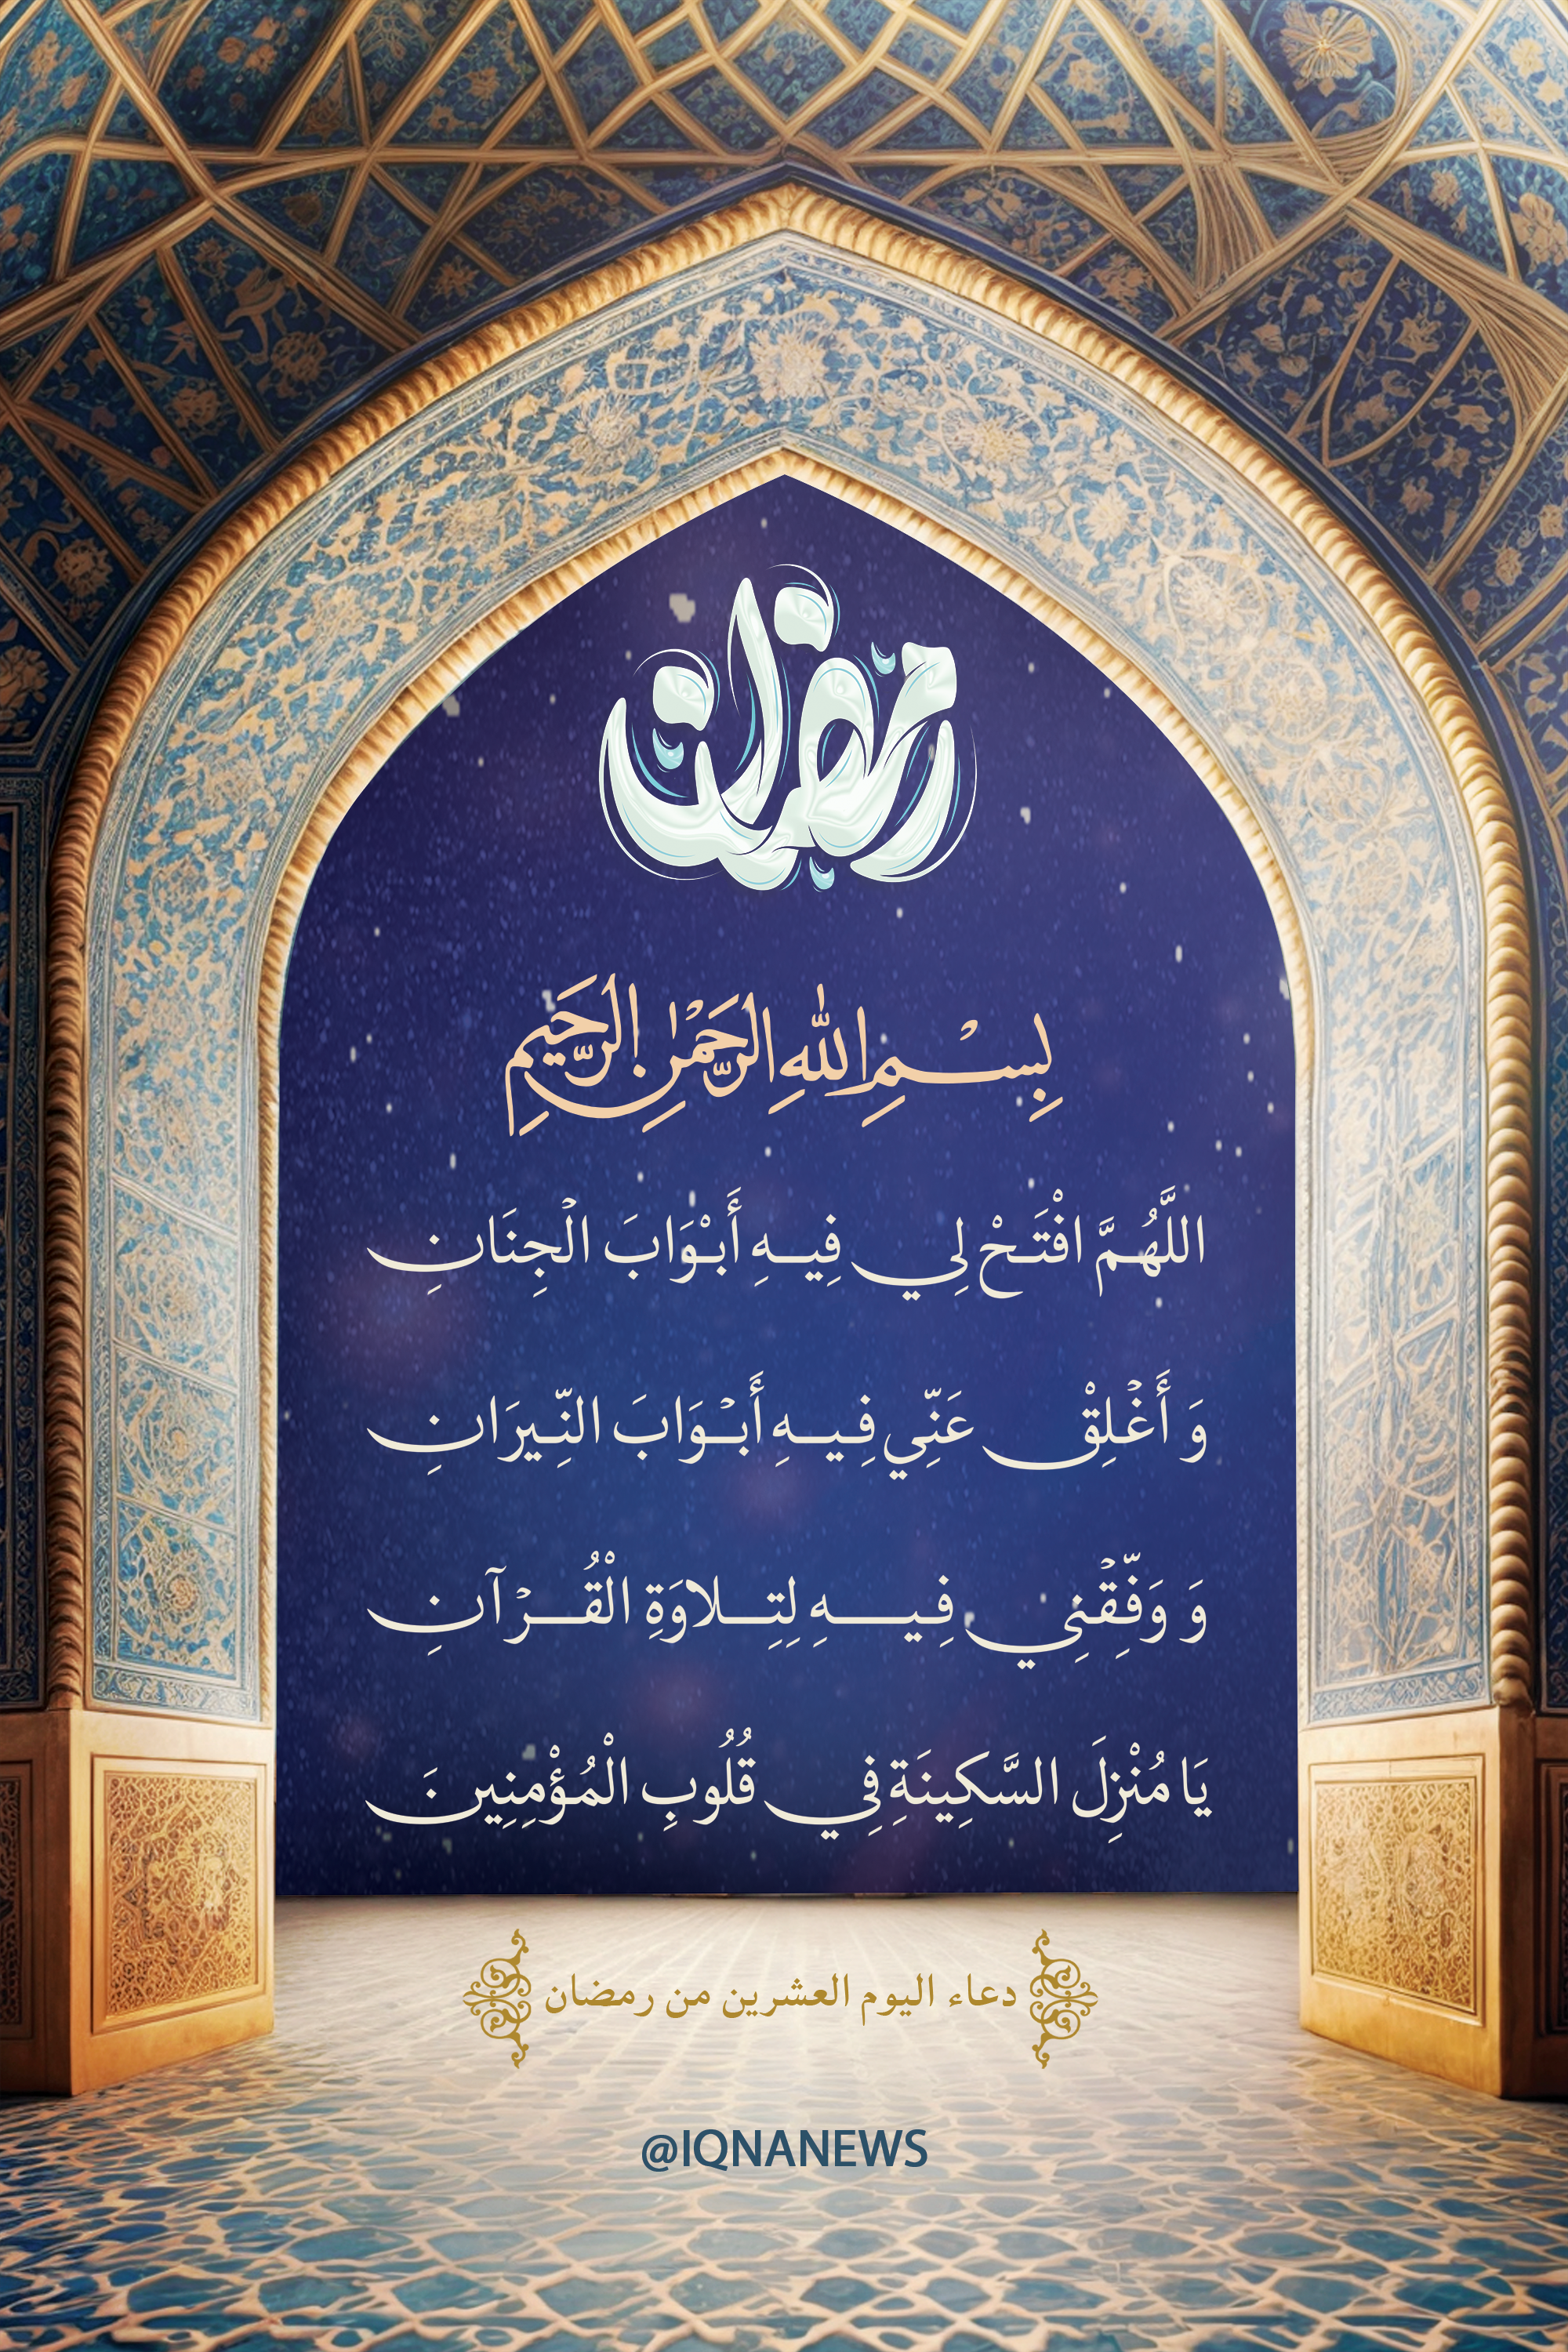 رمضان
بِسْمِ اللهِ الرَّحْمٰنِ الرَّحِيمِ
اللَّهُمَّ افْتَحْ لِي فِيهِ أَبْوَابَ الْجِنَانِ
وَ أَغْلِقْ عَنِّي فِيهِ أَبْوَابَ النِّيرَانِ
وَ وَفِّقْنِي فِيهِ لِتِلاوَةِ الْقُرْآنِ
يَا مُنْزِلَ السَّكِينَةِ فِي قُلُوبِ الْمُؤْمِنِينَ
دعاء اليوم العشرين من رمضان
@IQNANEWS